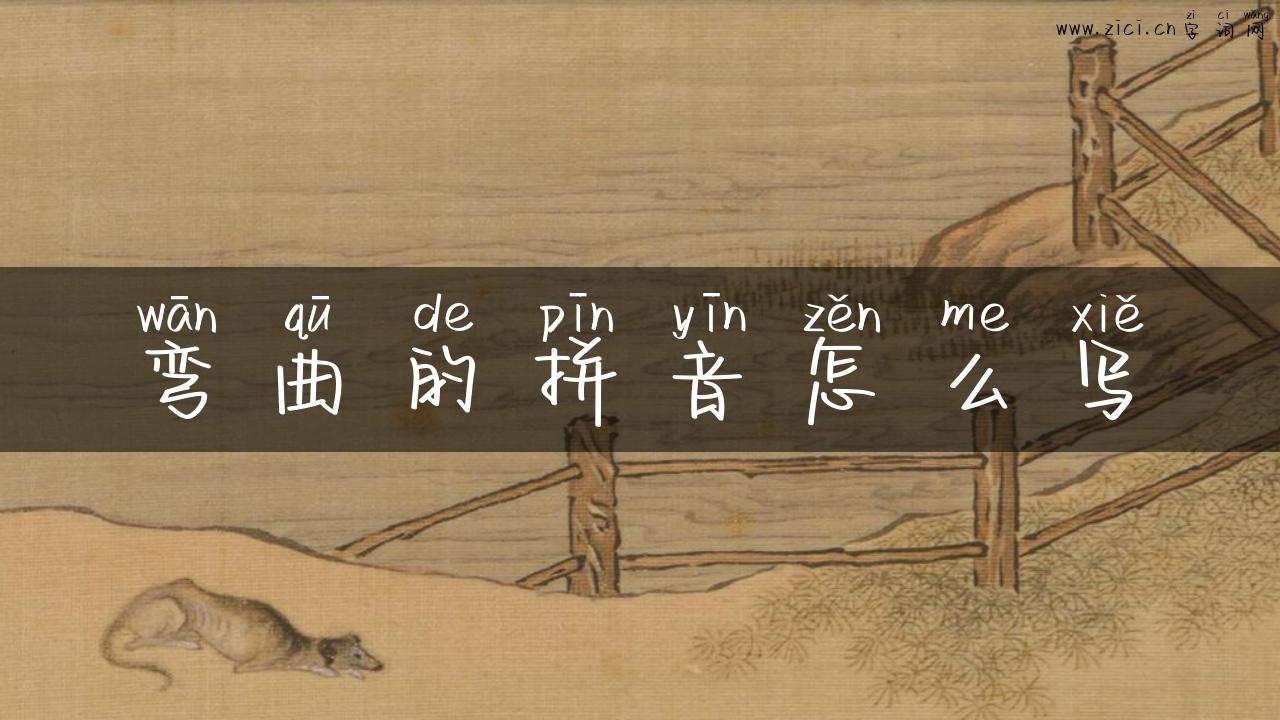 zi ci wang
www.zici.cn字词网
wān qū de pīn yīn zěn me xiě
弯曲的拼音怎么写